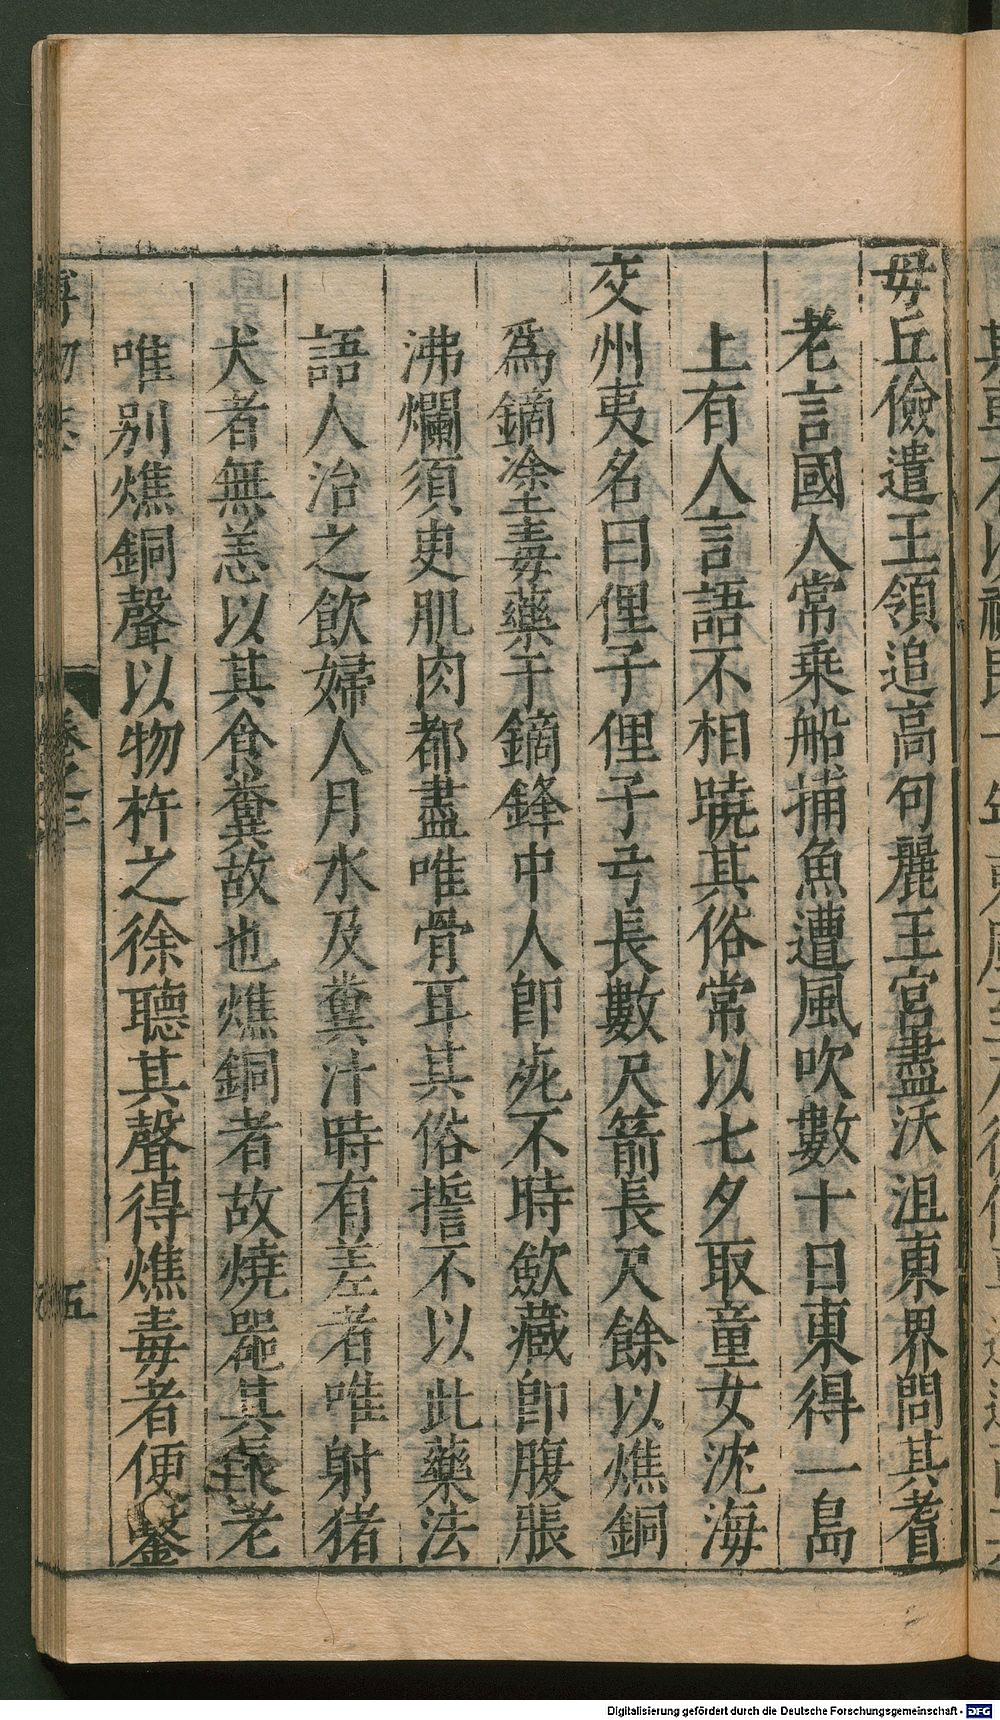 毋丘儉遣王領追高句麗王宮盡沃沮東界問其耆
老言國人常乗船捕魚遭風吹數十日東得一島
上有人言語不相曉其俗常以七夕取童女沈海
交州夷名曰俚子俚子弓長數尺箭長尺餘以燋銅
爲鏑塗毒藥于鏑鋒中人即死不時斂藏即腹脹
沸爛須臾肌肉都盡唯骨耳其俗誓不以此藥法
語人治之飲婦人月水及糞汁時有差者唯射猪
犬者無恙以其食糞故也燋銅者故燒器其長老
唯别燋銅聲以物杵之徐聽其聲得燋毒者便鑿
卷之三
五
Digitalisierung gefördert durch die Deutsche Forschungsgemeinschaft - DFG